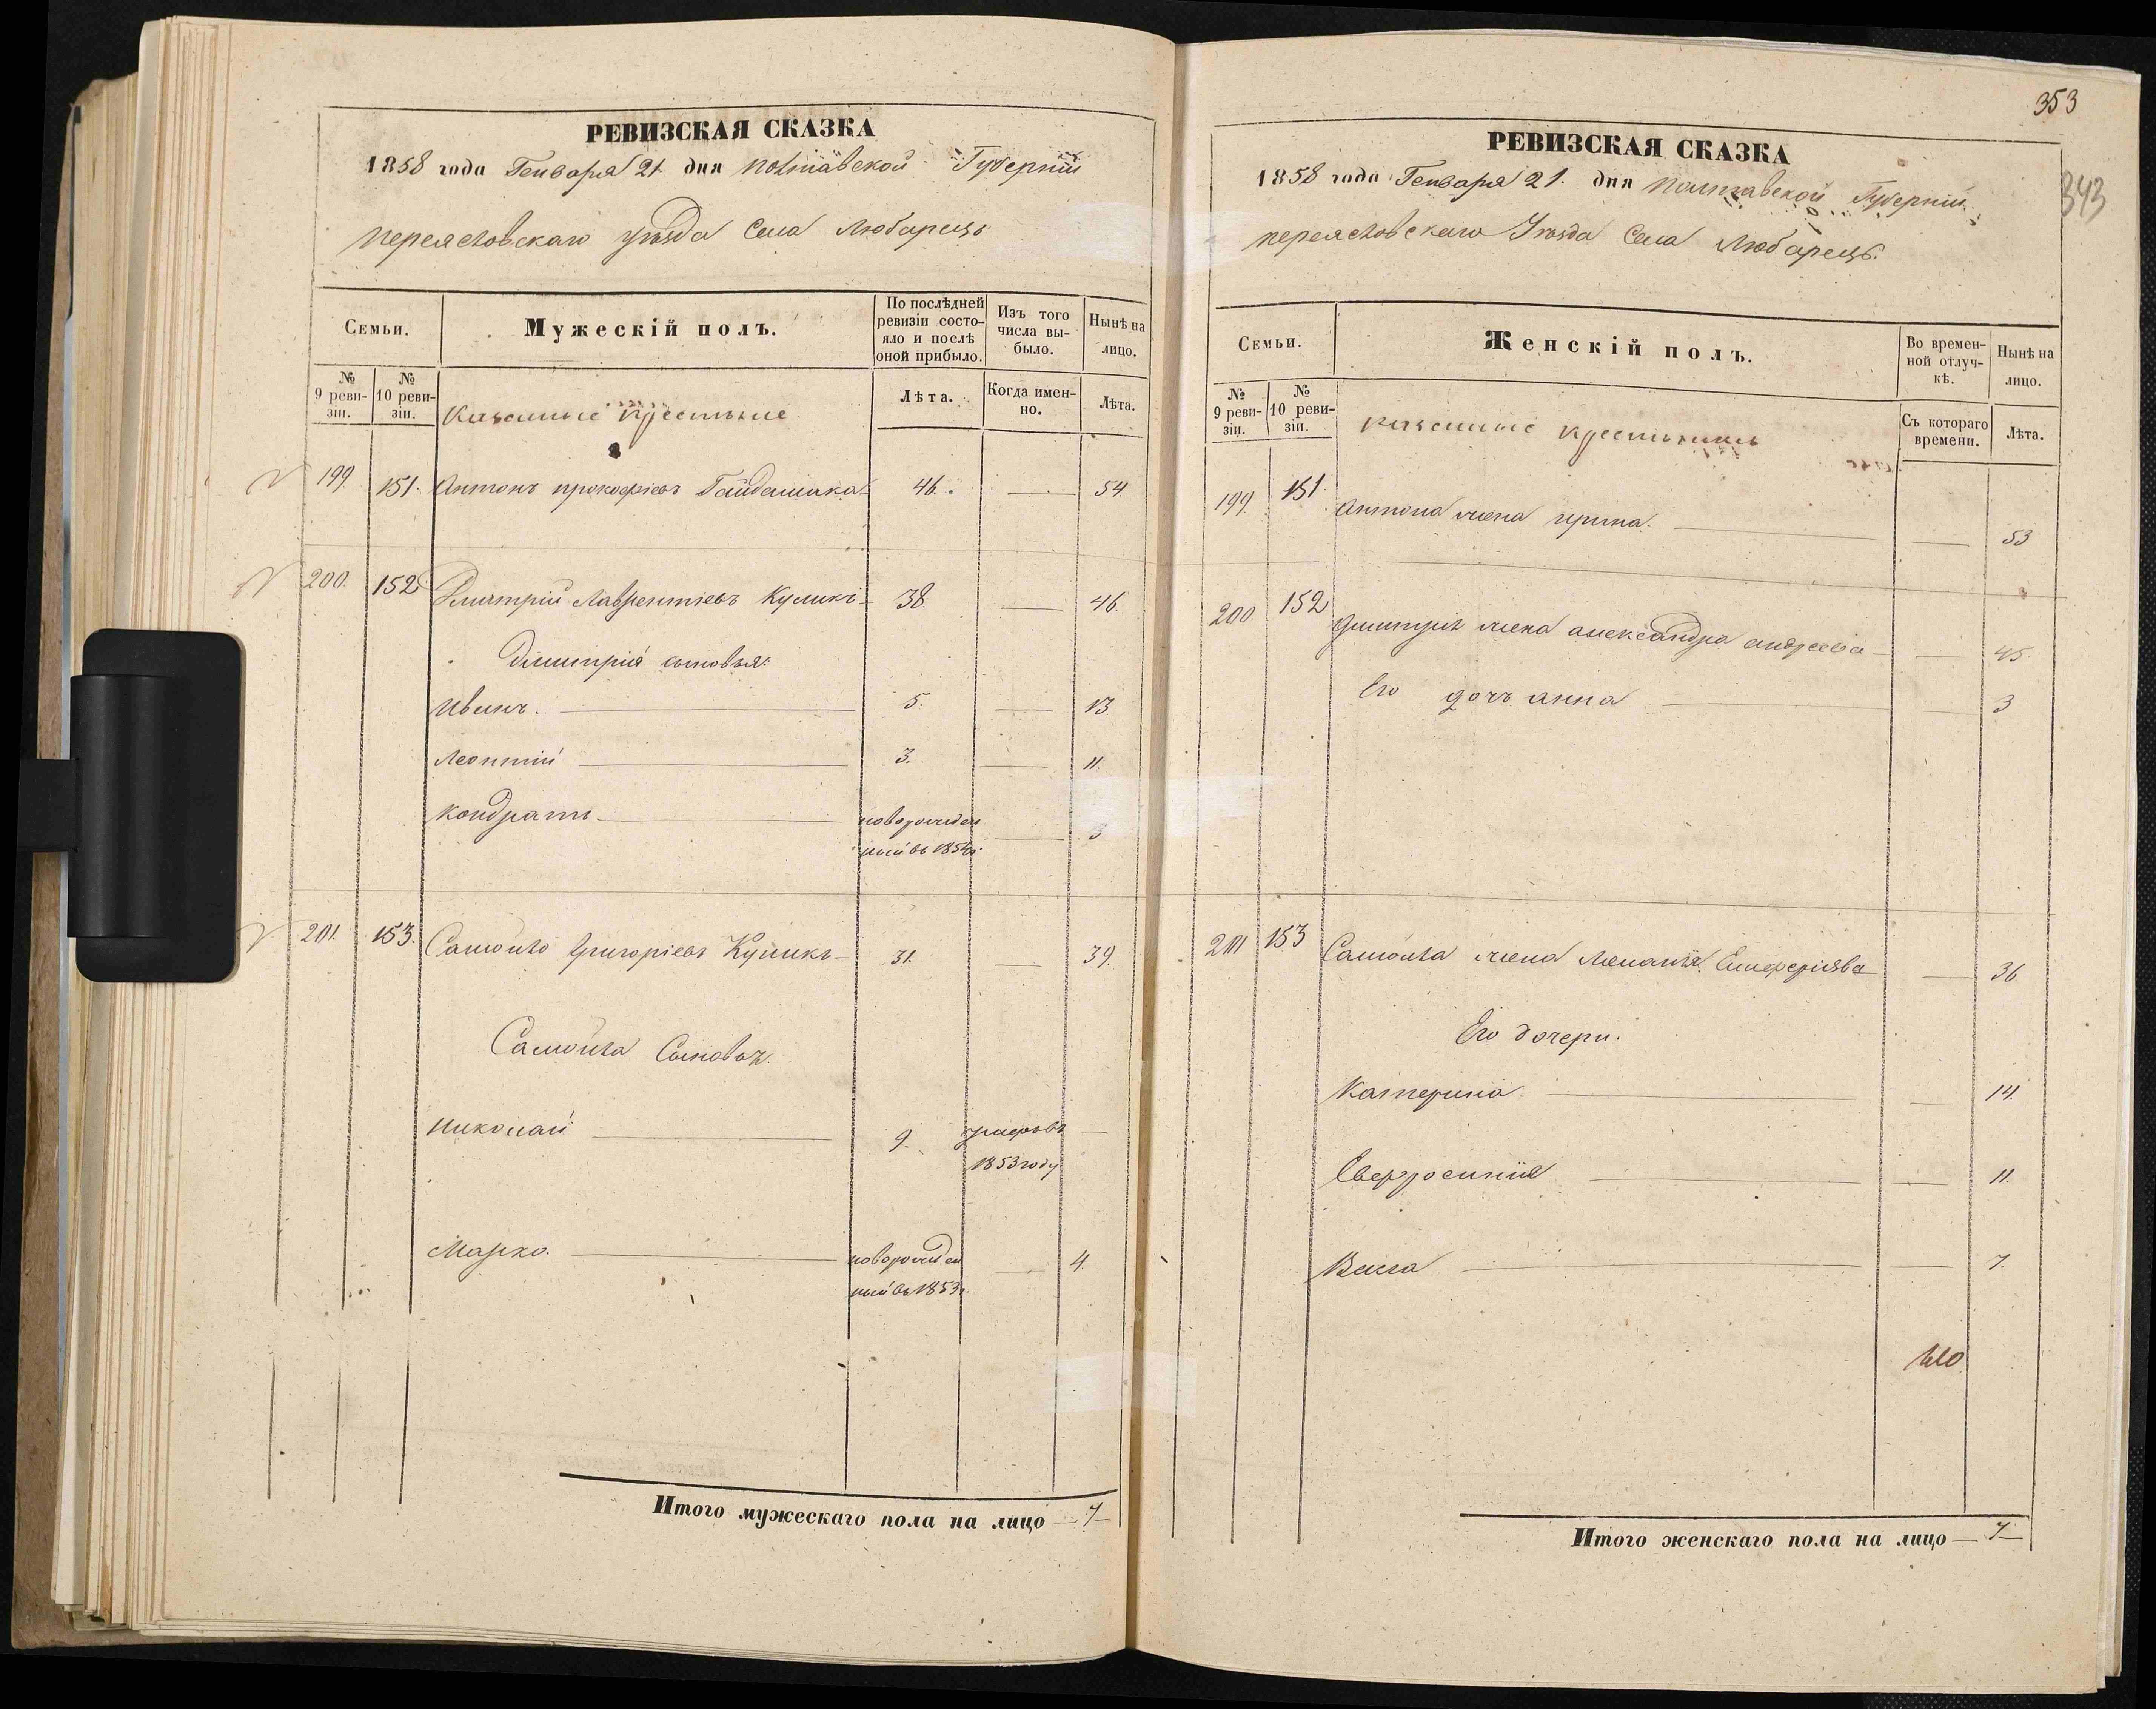 РЕВИЗСКАЯ СКАЗКА
1858 года Генваря 21. дня Полтавской Губерніи
переясловскаго уѣзда Села Любарецъ
Семьи.
Мужескій полъ.
По послѣдней ревизіи состояло и послѣ оной прибыло.
Изъ того числа выбыло.
Нынѣ на лицо.
№ 9 ревизіи.
№ 10 ревизіи.
Казенные крестьяне
Лѣта.
Когда именно.
Лѣта.
199 151. Антонъ прокофіевъ Гайдамака 46. 54.
200. 152 Дмитрій Лаврентіевъ Куликъ 38. 46.
Дмитрія сыновья:
Иванъ. 5. 13.
Леонтій 3. 11.
Кондратъ новорожден 3
ный въ 1854г.
201. 153. Самойло Григоріевъ Куликъ 31. 39.
Самойла Сыновья.
Николай 9. умеръ въ
1853 году
Марко. новорожден 4.
ный въ 1853г.
Итого мужескаго пола на лицо 7
353
343
РЕВИЗСКАЯ СКАЗКА
1858 года Генваря 21. дня Полтавской Губерніи
переясловскаго Уѣзда Села Любарецъ.
Семьи.
Женскій полъ.
Во временной отлучкѣ.
Нынѣ на лицо.
№ 9 ревизіи.
№ 10 ревизіи.
казенные крестьянки
Съ котораго времени.
Лѣта.
199. 151. Антона жена ирина. 53
200 152 Дмитрія жена александра андреева 45.
Его дочь анна 3
201 153 Самойла жена Меланія 36
Его дочери.
Катерина. 14.
Евфросинія 11.
Васса 7.
Итого женскаго пола на лицо 7